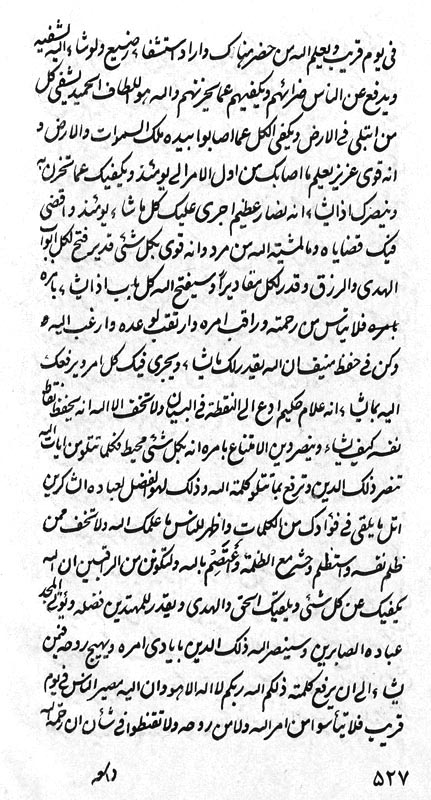 فی یوم قریب ویعلم الله من حضر هناک واراد استشفاء رضیع ولو شاء الله لیشفیه
ویدفع عن الناس ضرائهم ویکفیهم عما یحزنهم والله هو اللطاف الحمید لیشفی کل
من ابتلی فی الارض ویکفی الکل عما اصابوا بیده ملک السموات والارض و
انه قوی عزیز یعلم ما اصابک من اول الامر الی یومئذ ویکفیک عما تحزن به
وینصرک اذا یشاء انه لضار عظیم اجری علیک کل ما شاء یومئذ واقضی
فیک قضایاه وما لمشیة الله من مرد وانه قوی بکل شئی قدیر فتح لکل ابواب
الهدی والرزق وقدر لکل مقادیراً وسیفتح الله کل باب اذا یشاء بامره
بامره فلا تیأس من رحمته وراقب امره وارتقب لوعده وارغب الیه
وکن فی حفظ منیف ان الله یقدر لک ما یشاء ویجری فیک کل امر ویرفعک
الیه بما یشاء انه علام حکیم ادع الی النقطة فی البیان ولا تخف الا الله انه یحفظ نقطة
نفسه کیف یشاء وینصر دین الامتناع بامره انه بکل شئی محیط فکلما تتلو من ایات الله
تنصر ذلک الدین وترفع بما تتلو کلمة الله وذلک لهو الفضل لعباده الشاکرین
اتل ما یلقی فی فؤادک من الکلمات واظهر للناس ما علمک الله ولا تخف ممن
ظلم نفسه واستظلم وحشر مع الظلمة واعتصم بالله ولتکونن من الراقبین ان الله
یکفیک عن کل شئی ویلقیک الحق والهدی ویقدر للمهتدین فضله ویؤتی المجد
عباده الصابرین وسینصر الله ذلک الدین بایادی امره ویهیج روحه فیمن
یشاء الی ان یرفع کلمته ذلکم الله ربکم لا اله الا هو وان الیه مصیر الناس فی یوم
قریب فلا تیأسوا من امر الله ولا من روحه ولا تقنطوا فی شأن ان رحمة الله
۵۲۷